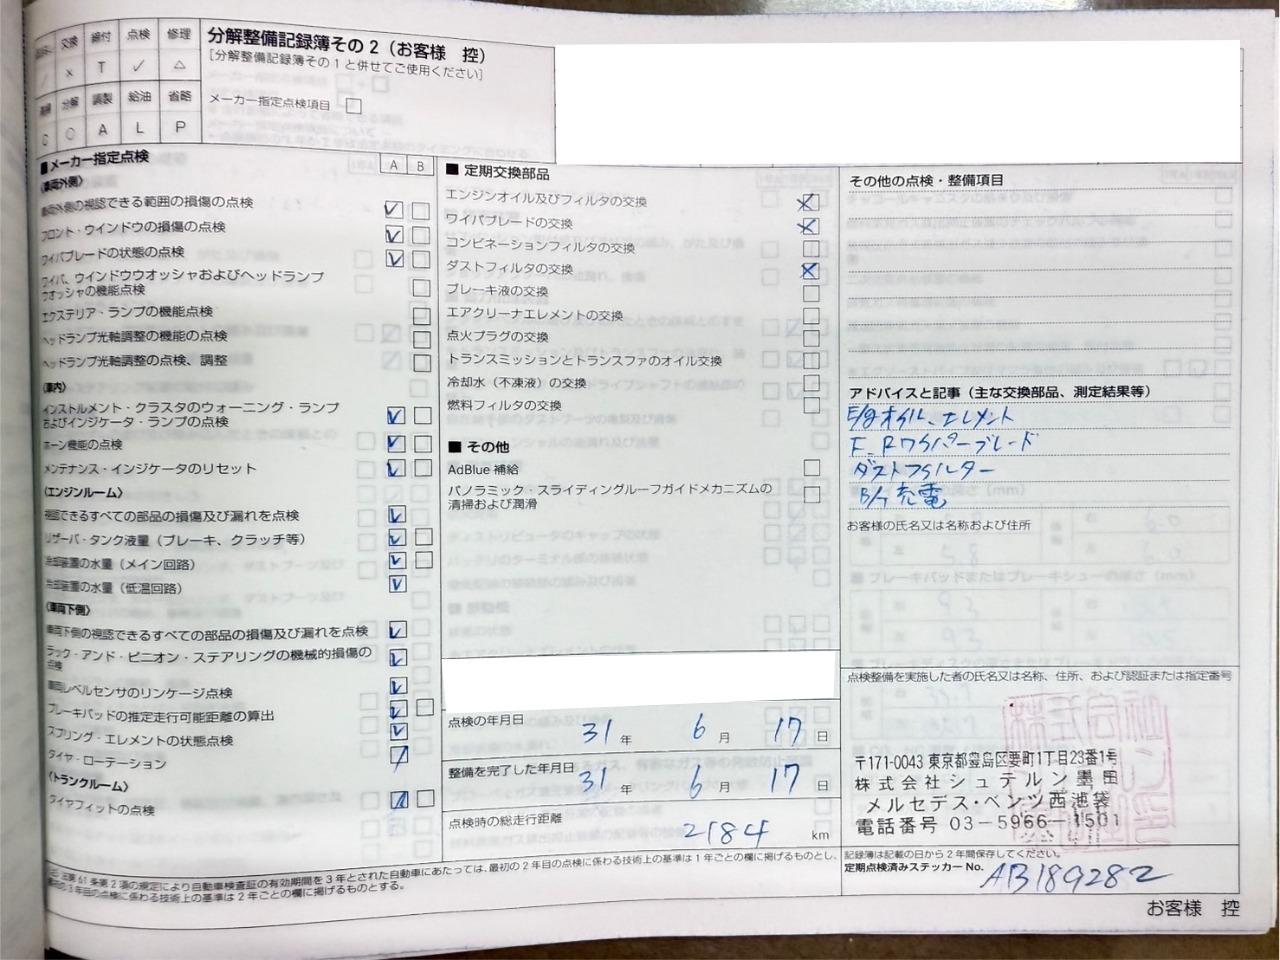 交換 締付 点検 修理
× T ✓ △
分解 調整 給油 省略
○ A L P
分解整備記録簿その2（お客様 控）
[分解整備記録簿その1と併せてご使用ください]
メーカー指定点検項目
■メーカー指定点検
A B
〈車両外側〉
車両外側の視認できる範囲の損傷の点検
フロント・ウインドの損傷の点検
ワイパブレードの状態の点検
ワイパ、ウインドウウオッシャおよびヘッドランプ
ウオッシャの機能点検
エクステリア・ランプの機能点検
ヘッドランプ光軸調整の機能の点検
ヘッドランプ光軸調整の点検、調整
〈車内〉
インストルメント・クラスタのウォーニング・ランプ
およびインジケータ・ランプの点検
ホーン機能の点検
メンテナンス・インジケータのリセット
〈エンジンルーム〉
視認できるすべての部品の損傷及び漏れを点検
リザーバ・タンク液量（ブレーキ、クラッチ等）
冷却装置の水量（メイン回路）
冷却装置の水量（低温回路）
〈車両下側〉
車両下側の視認できるすべての部品の損傷及び漏れを点検
ラック・アンド・ピニオン・ステアリングの機械的損傷の
点検
車両レベルセンサのリンケージ点検
ブレーキパッドの推定走行可能距離の算出
スプリング・エレメントの状態点検
タイヤ・ローテーション
〈トランクルーム〉
タイヤフィットの点検
■ 定期交換部品
エンジンオイル及びフィルタの交換
ワイパブレードの交換
コンビネーションフィルタの交換
ダストフィルタの交換
ブレーキ液の交換
エアクリーナエレメントの交換
点火プラグの交換
トランスミッションとトランスファのオイル交換
冷却水（不凍液）の交換
燃料フィルタの交換
■ その他
AdBlue 補給
パノラミック・スライディングルーフガイドメカニズムの
清掃および潤滑
点検の年月日 31 年 6 月 17 日
整備を完了した年月日 31 年 6 月 17 日
点検時の総走行距離 2184 km
その他の点検・整備項目
アドバイスと記事（主な交換部品、測定結果等）
E/gオイル、エレメント
F、Rワイパーブレード
ダストフィルター
B/T 充電
お客様の氏名又は名称および住所
点検整備を実施した者の氏名又は名称、住所、および認証または指定番号
〒171-0043 東京都豊島区要町1丁目23番1号
株式会社シュテルン墨田
メルセデス・ベンツ西池袋
電話番号 03-5966-1501
記録簿は記載の日から2年間保存してください。
定期点検済みステッカー No. AB189282
法第61条第2項の規定により自動車検査証の有効期間を3年とされた自動車にあたっては、最初の2年目の点検に係わる技術上の基準は1年ごとの欄に掲げるものとし、
の3年目の点検に係わる技術上の基準は2年ごとの欄に掲げるものとする。
お客様 控